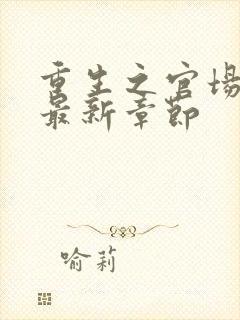 重生之官场
最新章节
喻莉